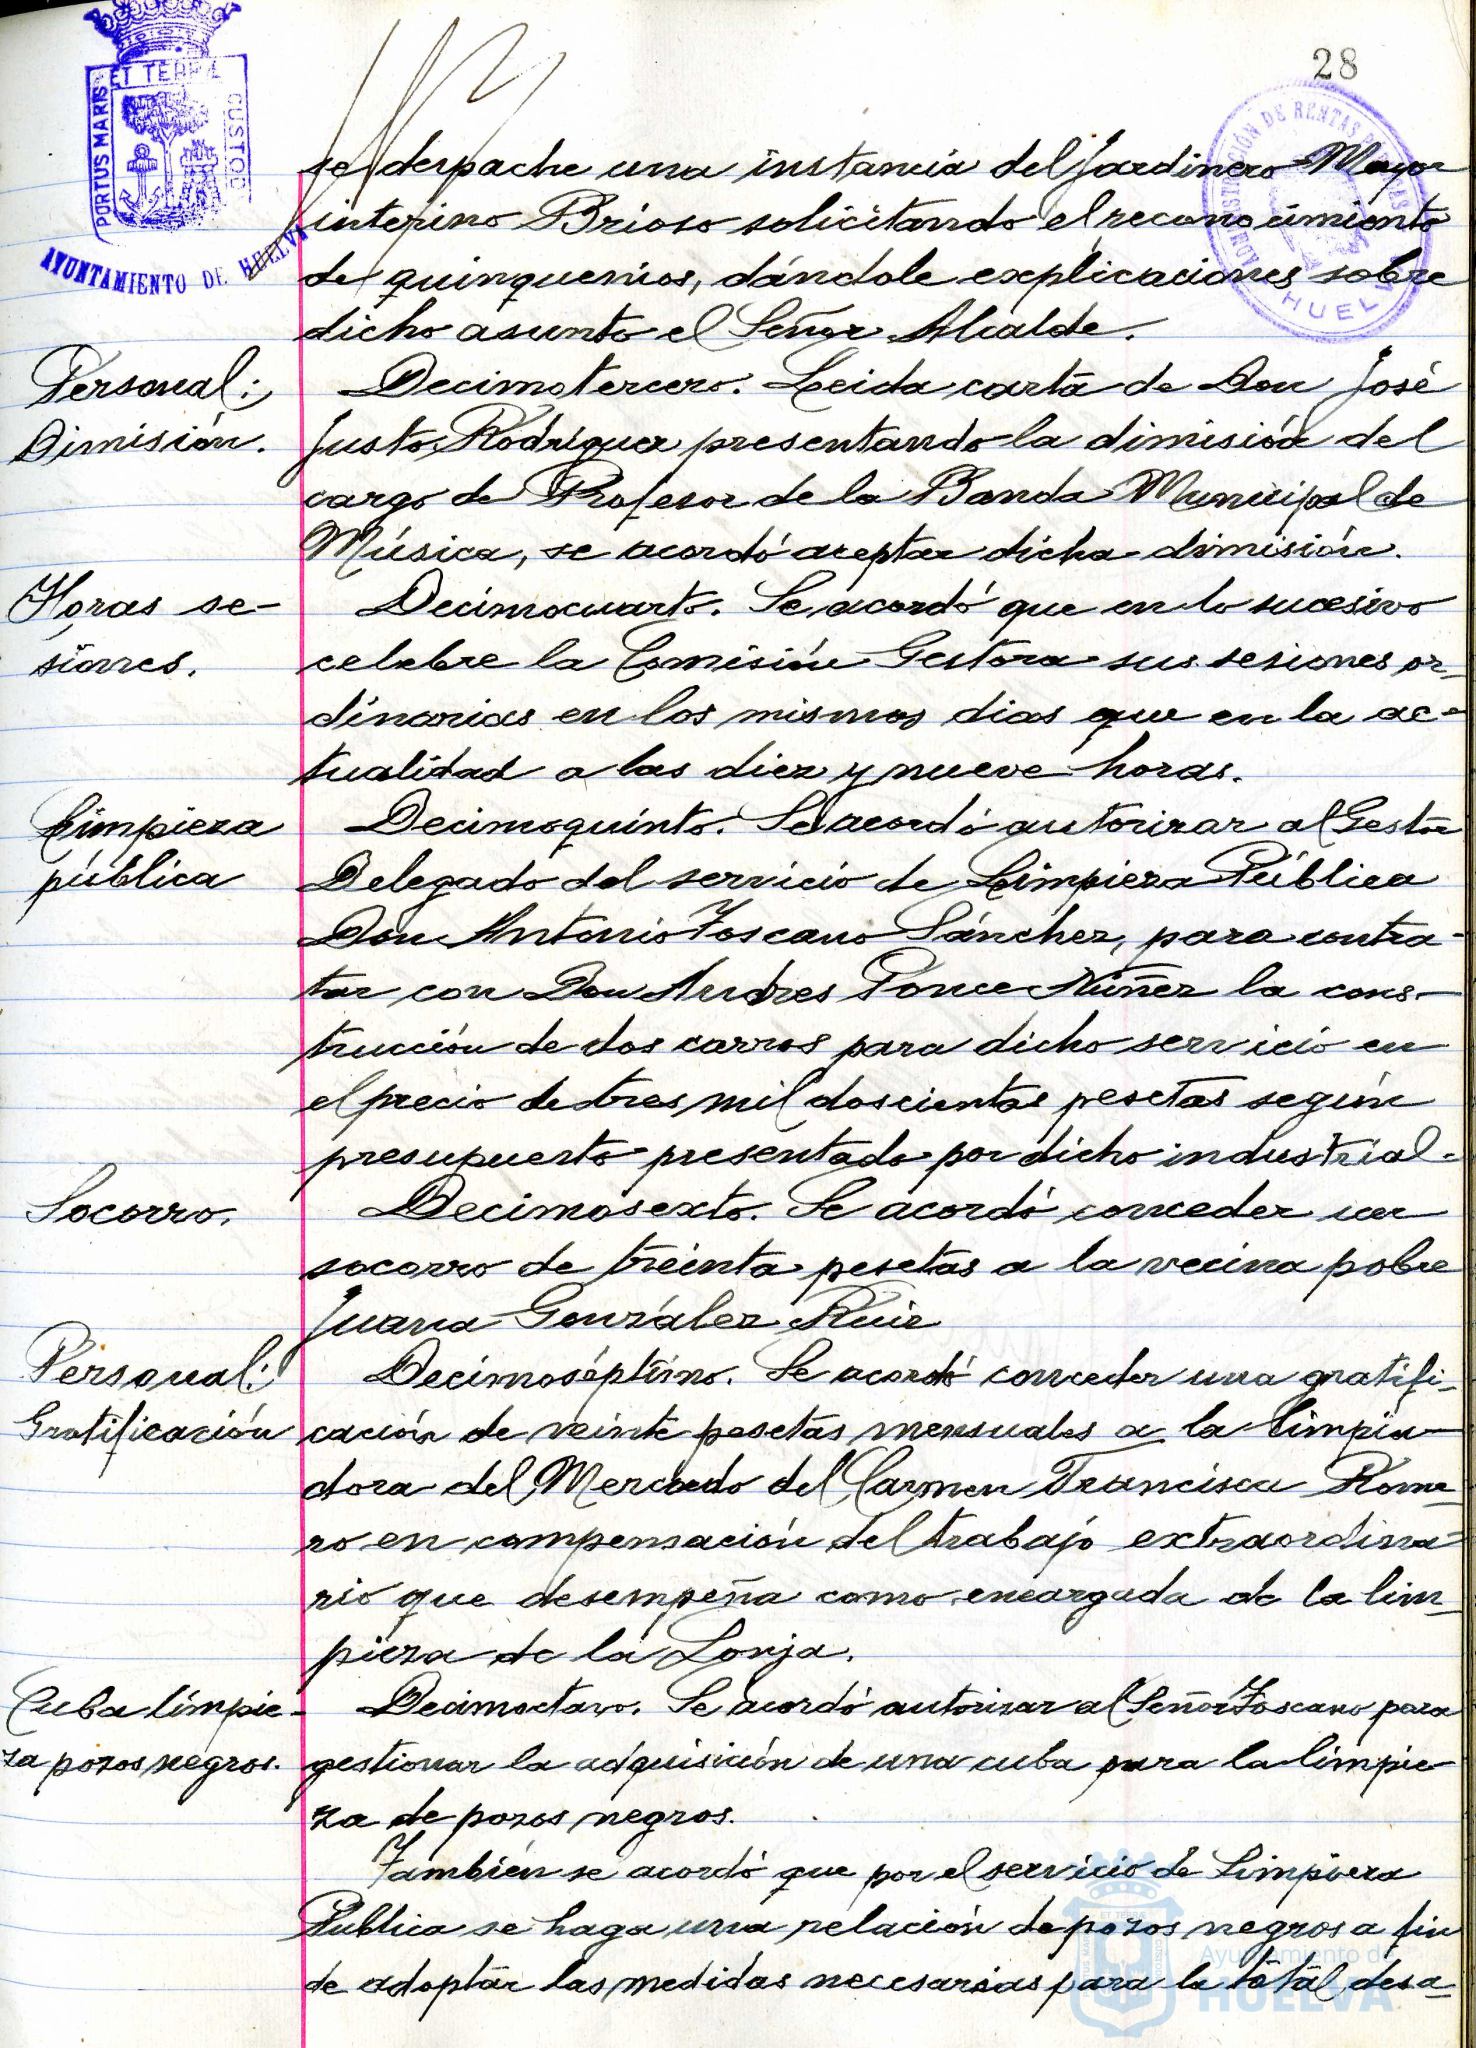 28
PORTUS MARIS ET TERRÆ CUSTOD
AYUNTAMIENTO DE HUELVA
ADMINISTRACIÓN DE RENTAS PÚBLICAS
HUELVA
se despache una instancia del Jardinero Mayor
interino Brioso solicitando el reconocimiento
de quinquenios, dándole explicaciones sobre
dicho asunto el Señor Alcalde.
Personal:
Dimisión.
Decimotercero. Leida carta de Don José
Justo Rodríguez presentando la dimisión del
cargo de Profesor de la Banda Municipal de
Música, se acordó aceptar dicha dimisión.
Horas se-
siones.
Decimocuarto. Se acordó que en lo sucesivo
celebre la Comisión Gestora sus sesiones or-
dinarias en los mismos dias que en la ac-
tualidad a las diez y nueve horas.
Limpieza
pública
Decimoquinto. Se acordó autorizar al Gestor
Delegado del servicio de Limpieza Pública
Don Antonio Toscano Sánchez, para contra-
tar con Don Andres Ponce Núñez la cons-
trucción de dos carros para dicho servicio en
el precio de tres mil doscientas pesetas según
presupuesto presentado por dicho industrial.
Socorro.
Decimosexto. Se acordó conceder un
socorro de treinta pesetas a la vecina pobre
Juana González Ruiz
Personal:
Gratificación
Decimoséptimo. Se acordó conceder una gratifi-
cación de veinte pesetas mensuales a la limpia-
dora del Mercado del Carmen Francisca Rome-
ro en compensación del trabajo extraordina-
rio que desempeña como encargada de la lim-
pieza de la Lonja.
Cuba limpie-
za pozos negros.
Decimoctavo. Se acordó autorizar al Señor Toscano para
gestionar la adquisición de una cuba para la limpie-
za de pozos negros.
También se acordó que por el servicio de Limpieza
Publica se haga una relación de pozos negros a fin
de adoptar las medidas necesarias para la total desa-
Ayuntamiento de
HUELVA